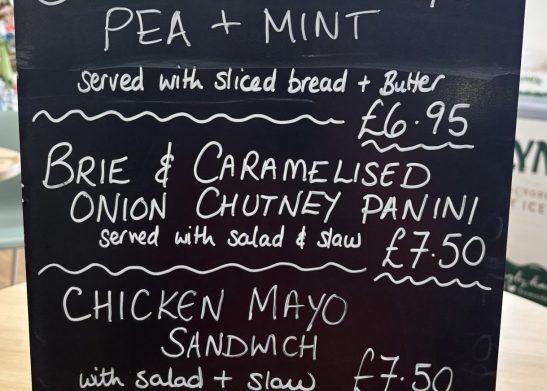 PEA + MINT
served with sliced bread + Butter
£6.95
BRIE & CARAMELISED
ONION CHUTNEY PANINI
served with salad & slaw
£7.50
CHICKEN MAYO
SANDWICH
with salad + slaw £7.50